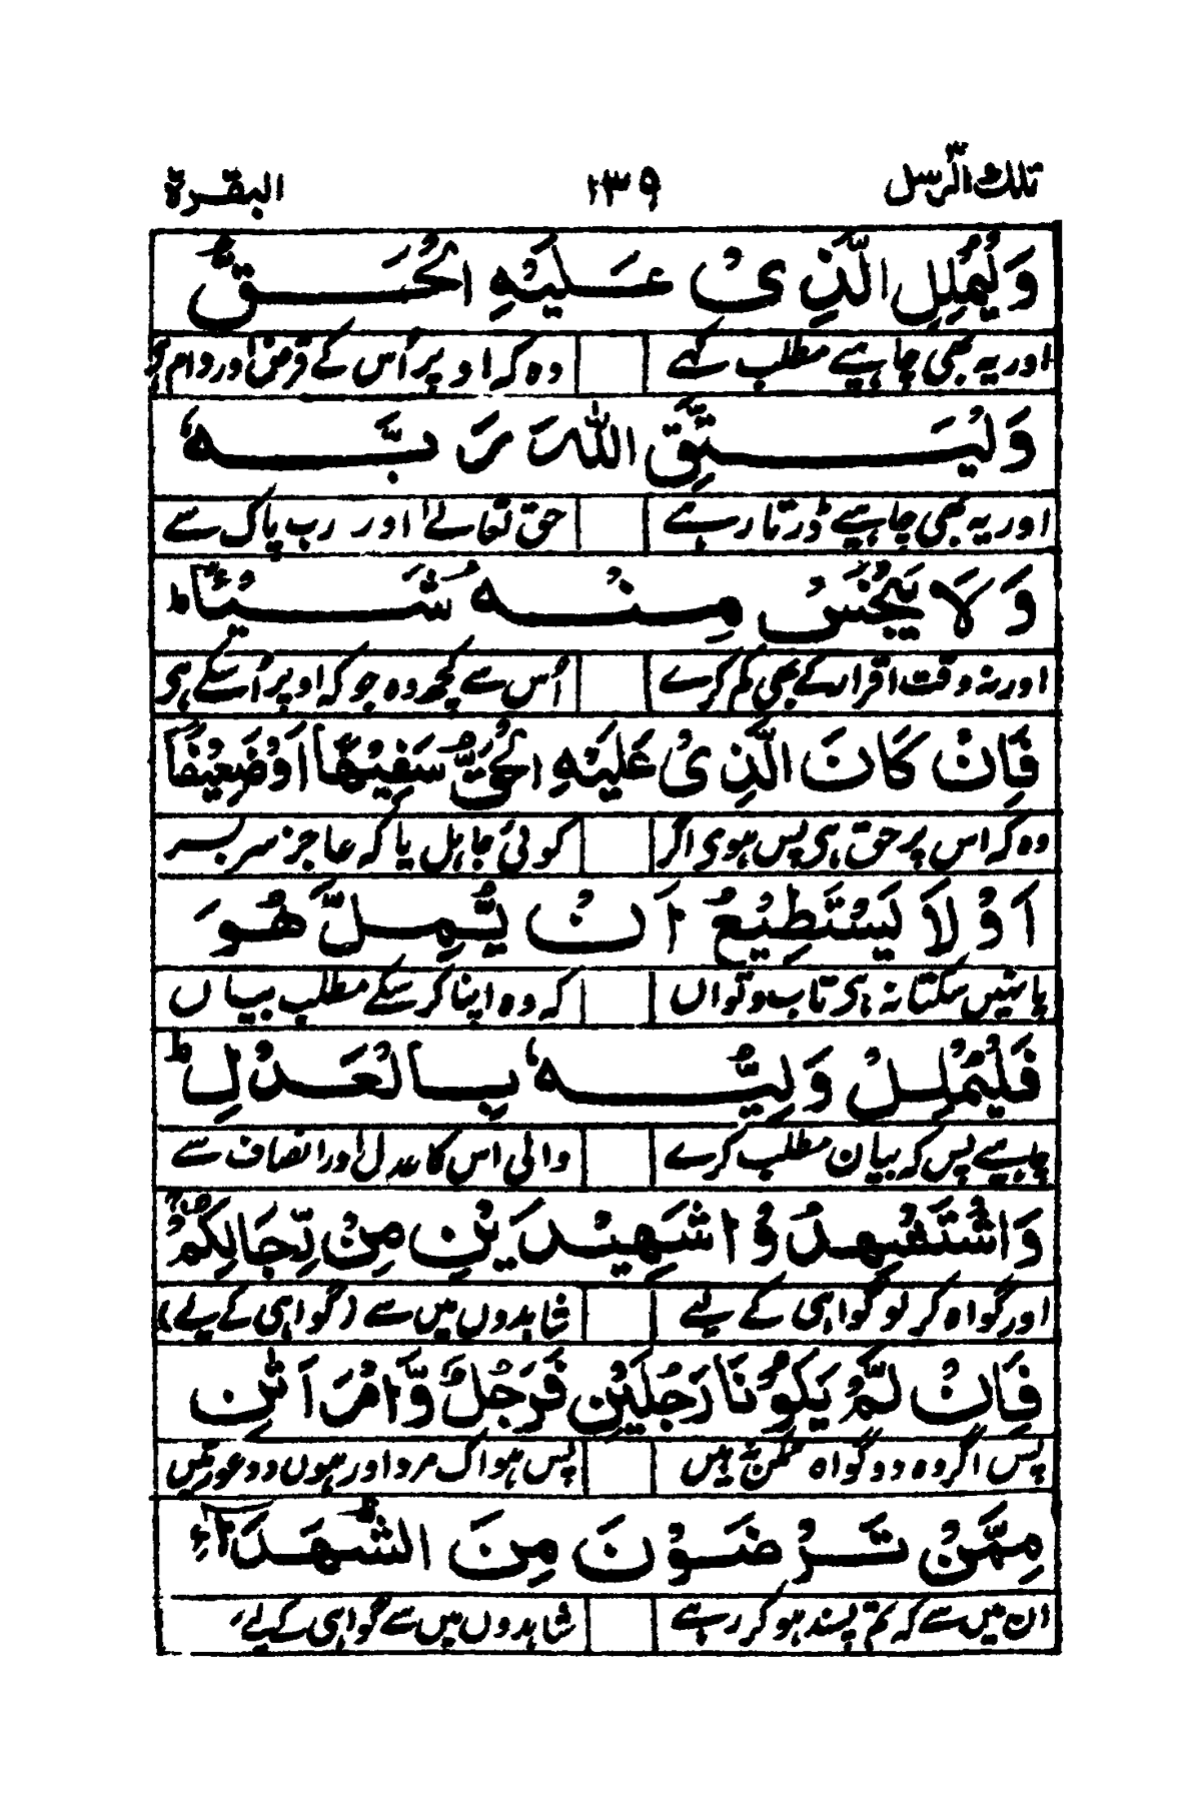 تلك الرسل ٣ ١٣٩ البقرة ٢
وَلْيُمْلِلِ الَّذِىْ عَلَيْهِ الْحَقُّ
اور یہ بھی چاہیے مطلب کہے وہ کہ اوپر اُس کے قرض اور دام ہو
وَلْيَتَّقِ اللّٰهَ رَبَّهٗ
اور یہ بھی چاہیے ڈرتا رہے حق تعالےٰ اور رب پاک سے
وَلَا يَبْخَسْ مِنْهُ شَيْئًا ؕ
اور نہ وقت اقرار کے بھی کم کرے اُس سے کچھ وہ جو کہ اوپر اُسکے ہی
فَاِنْ كَانَ الَّذِىْ عَلَيْهِ الْحَقُّ سَفِيْهًا اَوْ ضَعِيْفًا
وہ کہ اس پر حق ہی پس ہوی اگر کوئی جاہل یا کہ عاجز سر بسر
اَوْ لَا يَسْتَطِيْعُ اَنْ يُّمِلَّ هُوَ
یا نہیں سکتا نہ ہی تاب و تواں کہ وہ اپنا کر سکے مطلب بیاں
فَلْيُمْلِلْ وَلِيُّهٗ بِالْعَدْلِ ؕ
چاہیے پس کہ بیان مطلب کرے والی اس کا عدل اور انصاف سے
وَاسْتَشْهِدُوْا شَهِيْدَيْنِ مِنْ رِّجَالِكُمْ ۚ
اور گواہ کر لو گواہی کے لیے شاہدوں میں سے (گواہی کے لیے)
فَاِنْ لَّمْ يَكُوْنَا رَجُلَيْنِ فَرَجُلٌ وَّامْرَاَتٰنِ
پس اگر وہ دو گواہ ممکن نہ ہیں پس ہو اک مرد اور ہوں دو عورتیں
مِمَّنْ تَرْضَوْنَ مِنَ الشُّهَدَآءِ
ان میں سے کہ تم پسند ہو کر رہے شاہدوں میں سے گواہی کے لیے